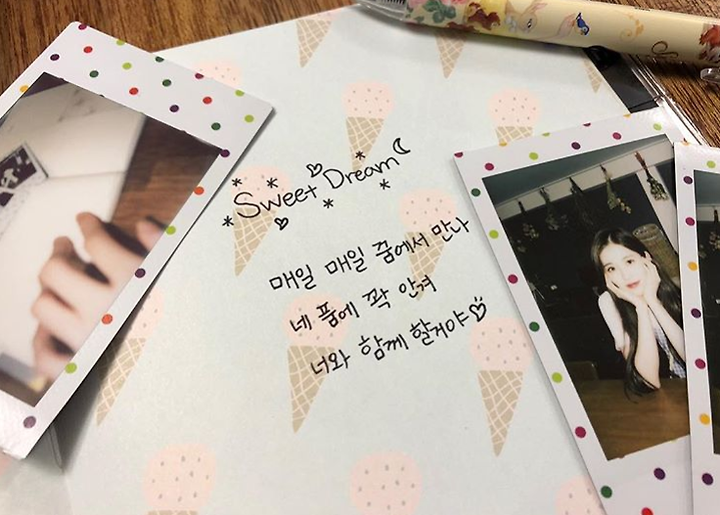 Sweet Dream
매일 매일 꿈에서 만나
네 품에 꽉 안겨
너와 함께 할거야